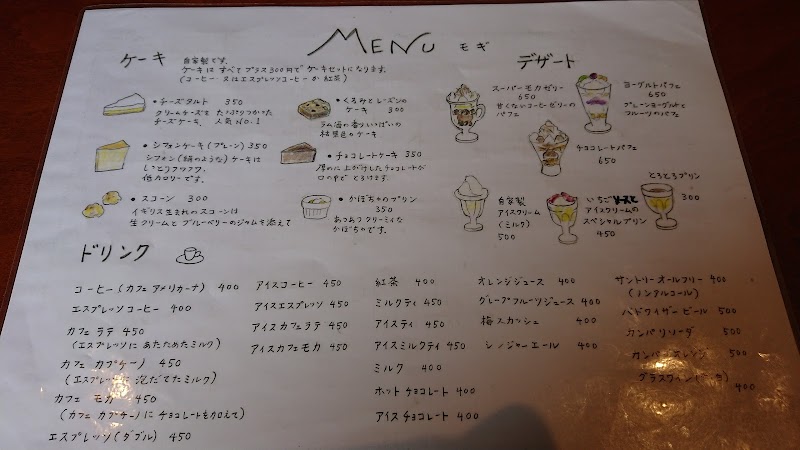 MENU モギ
ケーキ
自家製です。
ケーキは すべて プラス300円で ケーキセットになります。
(コーヒー 又は エスプレッソコーヒー か 紅茶)
・チーズタルト 350
クリームチーズを たっぷりつかった
チーズケーキ。 人気No.1
・シフォンケーキ(プレーン) 350
シフォン(絹のような)ケーキは
しっとりフワフワ。
低カロリーです。
・スコーン 300
イギリス生まれのスコーンは
生クリームと ブルーベリーのジャムを添えて
・くるみとレーズンの
ケーキ 300
ラム酒の香りいっぱいの
ケーキ
・チョコレートケーキ 350
厚めに 上がけしたチョコレートが
口の中で とろけます。
・かぼちゃのプリン
350
あつあつ クリーミィな
かぼちゃです。
デザート
スーパーモカゼリー
650
甘くないコーヒーゼリーの
パフェ
ヨーグルトパフェ
650
プレーンヨーグルトと
フルーツのパフェ
チョコレートパフェ
650
自家製
アイスクリーム
(ミルク)
500
いちごソースと
アイスクリームの
スペシャルプリン
450
とろとろプリン
300
ドリンク
コーヒー(カフェ アメリカーナ) 400
エスプレッソコーヒー 400
カフェ ラテ 450
(エスプレッソに あたためたミルク)
カフェ カプチーノ 450
(エスプレッソに 泡だてたミルク)
カフェ モカ 450
(カフェ カプチーノに チョコレートをくわえて)
エスプレッソ(ダブル) 450
アイスコーヒー 450
アイスエスプレッソ 450
アイスカフェラテ 450
アイスカフェモカ 450
紅茶 400
ミルクティ 450
アイスティ 450
アイスミルクティ 450
ミルク 400
ホットチョコレート 400
アイスチョコレート 400
オレンジジュース 400
グレープフルーツジュース 400
梅スカッシュ 400
ジンジャーエール 400
サントリーオールフリー 400
(ノンアルコール)
バドワイザービール 500
カンパリソーダ 500
カンパリオレンジ 500
グラスワイン
400